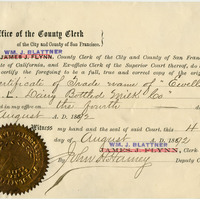 ffice of the County Clerk
of the City and County of San Francisco.
WM. J. BLATTNER
JAMES J. FLYNN, County Clerk of the City and County of San Fran
te of California, and Ex-officio Clerk of the Superior Court thereof, do
certify the foregoing to be a full, true and correct copy of the origin
ertificate of Trade name of "
L. Dairy Bottled Milk Co"
on the fourth
August A. D. 18 2
Witness my hand and the seal of said Court, this 4
day of August A. D. 1892
WM. J. BLATTNER
JAMES J. FLYNN
John H. Harney Deputy C